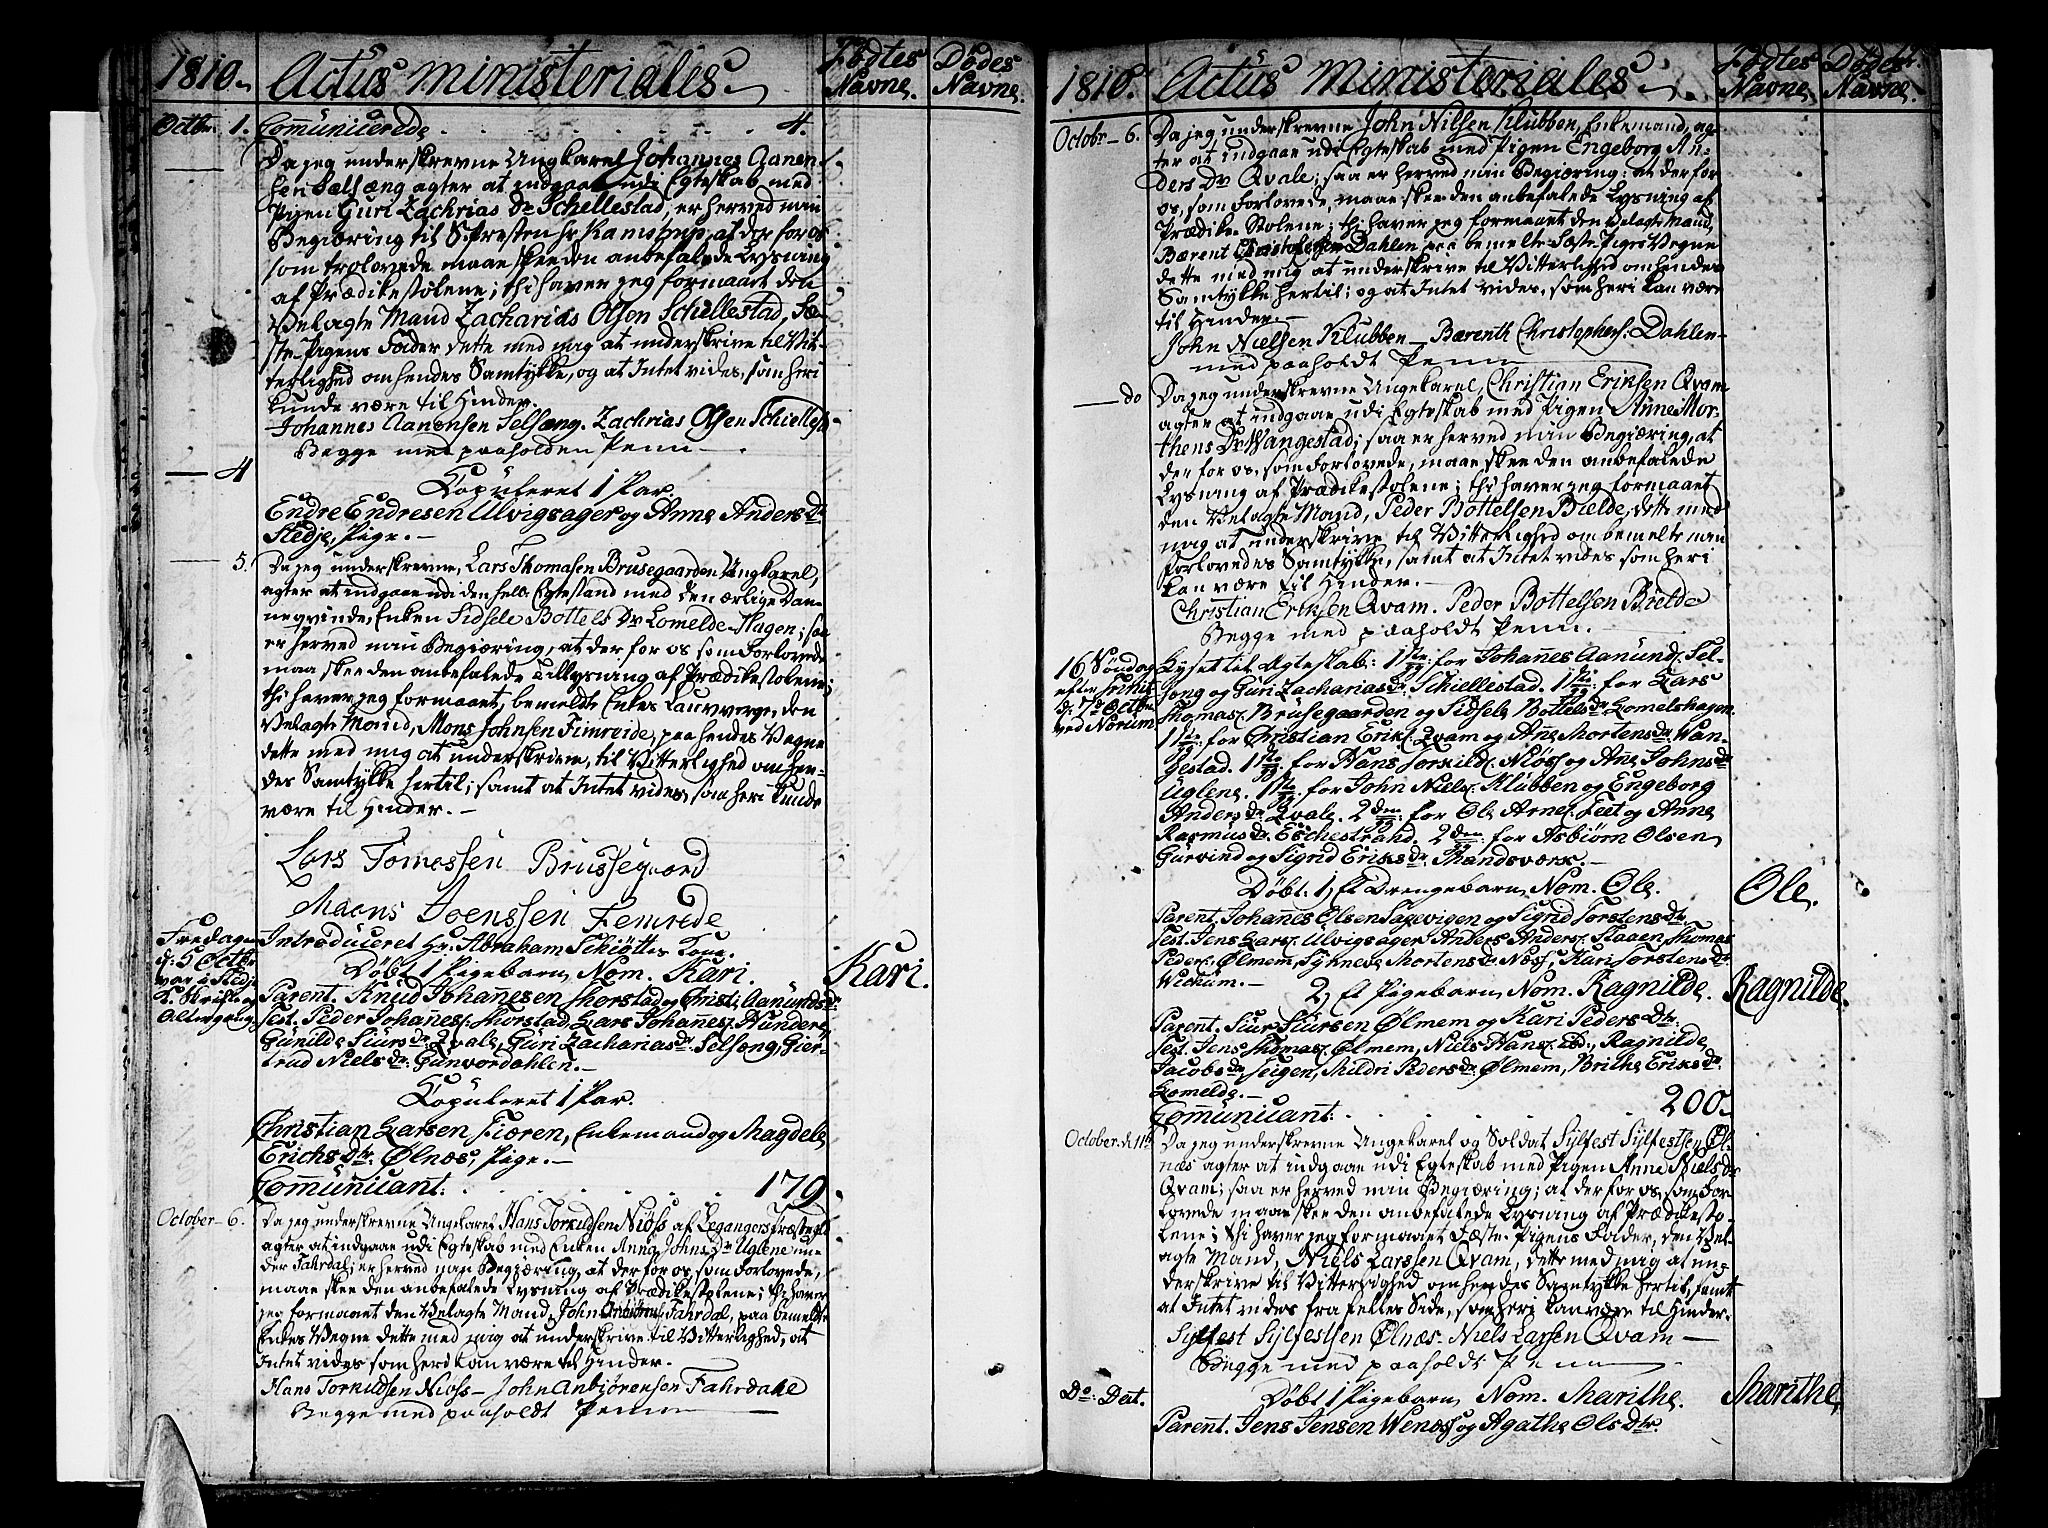 1810. Actus ministeriales. Fødtes Navne. Dødes Navne.
Octbr. 1. Com̄unicerede . . . . . . . 4.
Da jeg underskrevne Ungkarel Johannes Aanen-
sen Selseng agter at indgaae udi Egteskab med
Pigen Guri Zachrias Dr Schellestad, er herved min
Begiæring til S. Presten Hr Kamstrup, at der for os
som trolovede maae skee den anbefalede Lysning
af Prædikestolene; thi haver jeg formaaet den
Velagte Mand Zacharias Olsen Schellestad, Fæ-
ste-Pigens Fader dette med mig at underskrive til Vit-
terlighed om hendes Samtykke, og at Intet vides, som heri
kunde være til Hinder.
Johannes Aanensen Selseng. Zachrias Olsen Schiellest
Begge med paaholden Penn
4 Copuleret 1 Par.
Endre Endresen Ulvigsager og Anne Anders Dr
Stedje, Pige.
5. Da jeg underskrevne, Lars Thomasen Brusegaarden Ungkarel,
agter at indgaae udi den hell. Egtestand med den ærlige Dan-
neqvinde, Enken Sidsele Bottels Dr Lomelde-Hagen; saa
er herved min Begiæring, at der for os som Forlovede
maa skee den anbefalede Tillysning af Prædikestolene;
thi haver jeg formaaet, bemeldte Enkes Laugverge, den
Velagte Mand, Mons Johnsen Fimreide, paa hendes Vegne
dette med mig at underskrive, til Vitterlighed om hen-
des Samtykke hertil; samt at Intet vides, som heri kunde
være til Hinder.
Lars Tomessen Brussegaard
Maens Joenssen Femrede
Fredagen d: 5 Octbr var i Stedje K. Skrifte og Altergang
Introduceret Hr. Abraham Schiøttes Kone.
Døbt 1 Pigebarn, Nom. Kari. Kari.
Parent. Knud Johannesen Thorstad og Christi Aanunds dr
Test. Peder Johannes. Thorstad, Lars Johannes. Hundere,
Gunilde Siurs dr Qvale, Guri Zacharias dr Selseng, Gier-
trud Niels dr Gunvordahlen.
Copuleret 1 Par.
Christian Larsen Fiæren, Enkemand og Magdele
Erichs Dtr. Ølnæs, Pige.
Com̄unicant: . . . . . . 179.
October 6. Da jeg underskrevne Ungekarel Hans Torkildsen Niøss af Leganger Præstegl
agter at indgaae udi Egteskab med Enken Anna Johns Dr Uglene un-
der Fahrdal; er herved min Begiæring, at der for os, som Forlovede,
maae skee den anbefalede Lysning af Prædikestolene; thi haver
jeg formaaet den Velagte Mand, John Anbiørns. Fahrdal, paa bemelte
Enkes Vegne dette med mig at underskrive til Vitterlighed, at
Intet vides som heri kan være til Hinder.
Hans Torkildsen Niøss - John Anbiørensen Fahrdahl
Begge med paaholdt Penn
1810. Actus Ministeriales. Fødtes Navne, Dødes Navne.
October 6. Da jeg underskrevne John Nilsen Klubben, Enkemand, ag-
ter at indgaae udi Egteskab med Pigen Engeborg An-
ders Dr Qvale; saa er herved min Begiæring: at der for
os, som Forlovede, maae skee den anbefalede Lysning af
Prædike-Stolene; thi haver jeg formaaet den Velagte Mand,
Bærent Christophersen Dahlen paa bemelte Fæste-Piges Vegne
dette med mig at underskrive til Vitterlighed om hendes
Samtykke hertil; og at Intet vides, som heri kan være
til Hinder.
John Nielsen Klubben - Bærenth Christophers. Dahlen
med paaholdt Penn
do Da jeg underskrevne Ungekarel, Christian Eriksen Qvam
agter at indgaae udi Egteskab med Pigen Anne Mor-
thens Dr Wangestad; saa er herved min Begiæring, at
der for os, som Forlovede, maae skee den anbefalede
Lysning af Prædikestolene; thi haver jeg formaaet
den Velagte Mand, Peder Bottelsen Bielde, dette med
mig at underskrive til Vitterlighed om bemelte min
Forlovedes Samtykke, samt at Intet vides som heri
kan være til Hinder.
Christian Eriksen Qvam. Peder Bottelsen Bielde
Begge med paaholdt Penn.
16 Søndag efter Trinit. d: 7de Octbr ved Norum
Lyset til Egteskab: 1ste g. for Johannes Aanunds. Sel-
seng og Guri Zacharias dr Schiellestad. 1ste g. for Lars
Thomas. Brusegaarden og Sidsele Bottels dr Lomelshagen
1ste g. for Christian Eriks. Qvam og Ane Mortens dr Wan-
gestad. 1ste g. for Hans Torkilds. Niøss og Ane Johns dr
Uglene. 1ste g. for John Niels. Klubben og Engeborg
Anders dr Qvale. 2den g. for Ole Arnes. Feet og Anne
Rasmus dr Eschestrand. 2den g. for Asbiørn Olsen
Gurvind og Sigrid Eriks dr Thandsværk.
Døbt: 1, Et Drengebarn, Nom. Ole. Ole.
Parent. Johanes Olsen Sagevigen og Sigrid Torstens Dtr.
Test. Jens Lars. Ulvigsager Anders Anders. Staaen Thomas
Peders. Ølmem, Syknese Mortens dr Næss, Kari Torstens dr
Wickum.
2, Et Pigebarn Nom. Ragnilde. Ragnilde.
Parent. Siur Siursen Ølmem og Kari Peders Dtr.
Test. Jens Thomas. Ølmem, Niels Hans. ibd., Ragnilde
Jacobs dr Seigen, Mildri Peders dr Ølmem, Brithe Eriks dr
Lomelde.
Com̄unicant: . . . . . 200.
October d: 11te Da jeg underskrevne Ungekarel og Soldat Sylfest Sylfestsen Øl-
næs agter at indgaae udi Egteskab med Pigen Anne Niels dr
Qvam; saa er herved min Begiæring; at der for os, som For-
lovede maae skee den anbefalede Lysning af Prædikesto-
lene; thi haver jeg formaaet Fæste-Pigens Fader, den Vel-
agte Mand, Niels Larssen Qvam, dette med mig at un-
derskrive til Vitterlighed om hendes Samtykke hertil, samt
at Intet vides fra felles Side, som heri kan være til Hinder.
Sylfest Sylfestsen Ølnæs - Niels Larsen Qvam
Begge med paaholdt Penn
Do: Dat. Døbt 1 Pigebarn Nom. Marithe. Marithe,
Parent. Jens Jensen Wenæss og Agathe Ols Dtr.